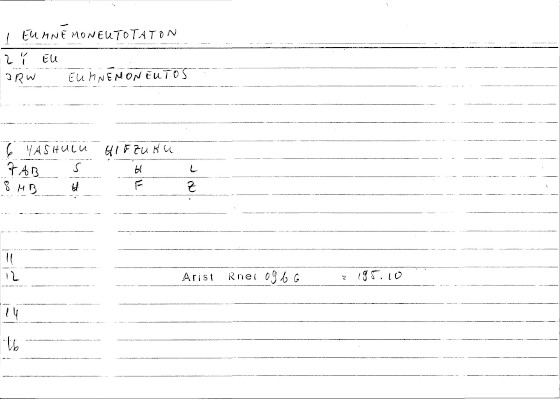 1 EUMNĒMONEUTOTATON
2 Y EU
3RW EUMNĒMONEUTOS
6 YASHULU ḤIFZUHU
7 AB S H L
8 HB Ḥ F Z
11
12 Arist Rhet 09b6 = 195.10
14
16